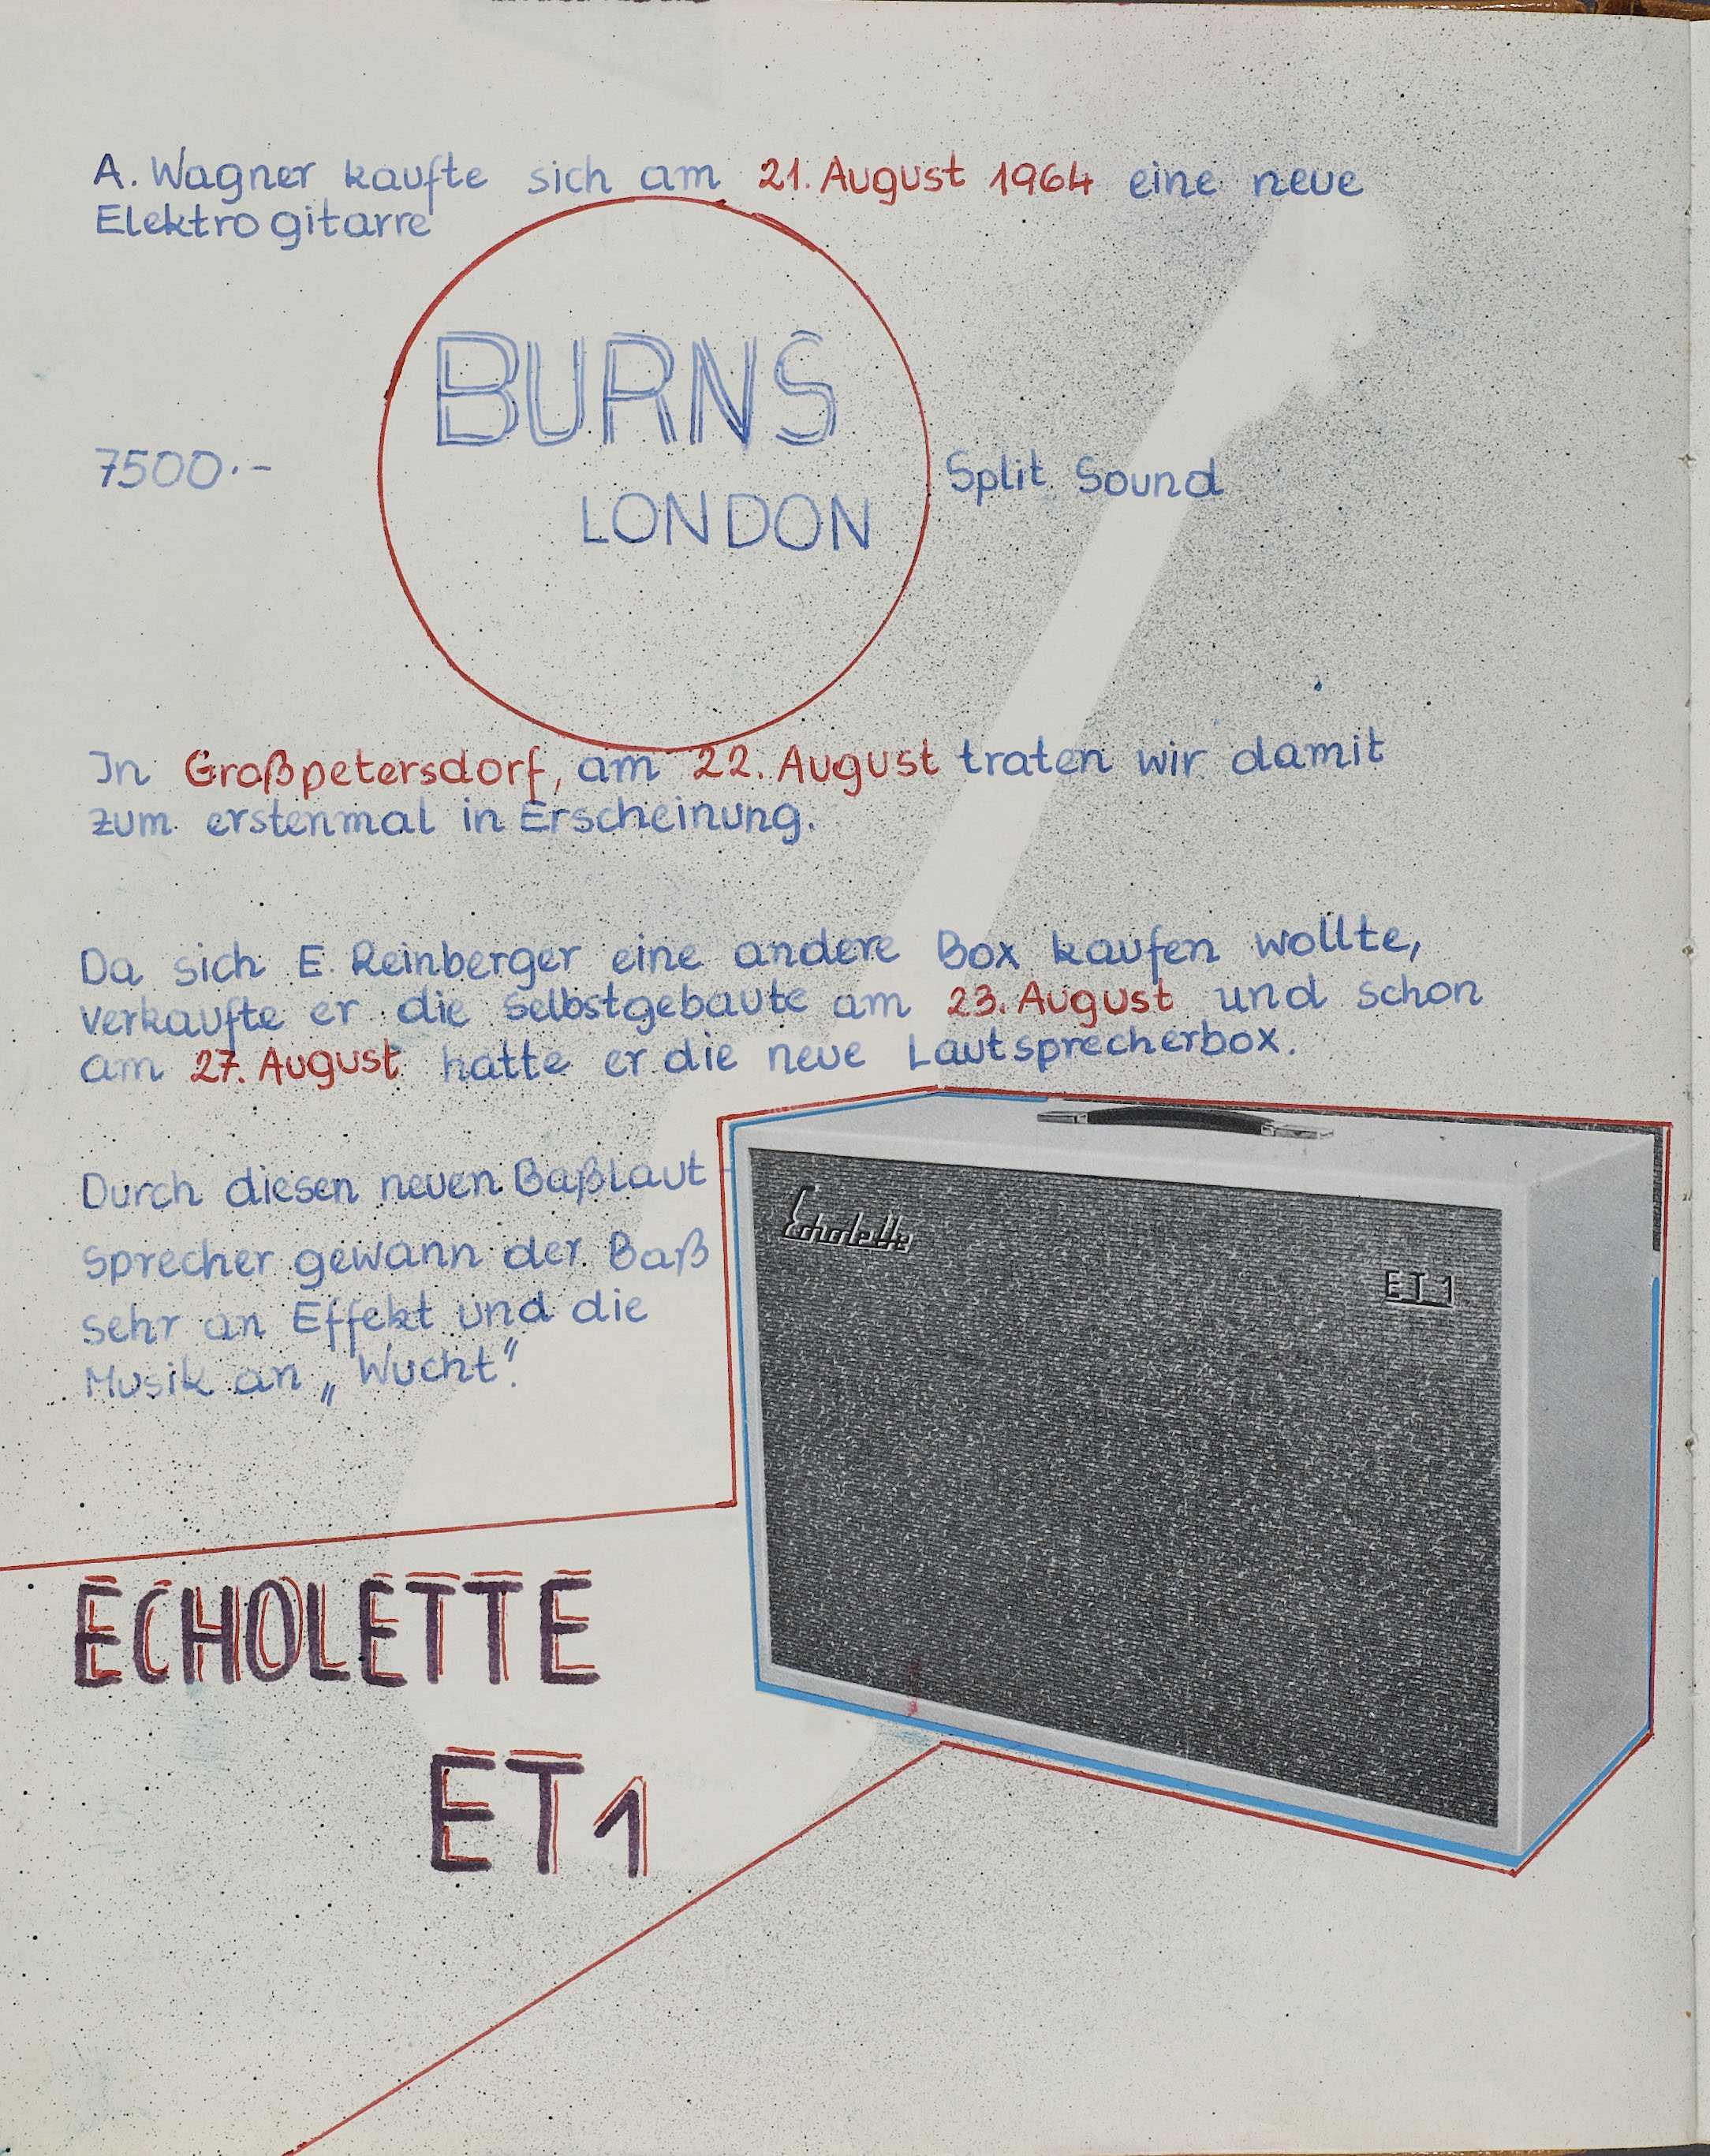 A. Wagner kaufte sich am 21. August 1964 eine neue
Elektrogitarre
BURNS
7500.-
Split Sound
LONDON
In Großpetersdorf, am 22. August traten wir damit
zum erstenmal in Erscheinung.
Da sich E. Reinberger eine andere Box kaufen wollte,
verkaufte er die selbstgebaute am 23. August und schon
am 27. August hatte er die neue Lautsprecherbox.
Durch diesen neuen Baßlaut
sprecher gewann der Baß
sehr an Effekt und die
Musik an „Wucht".
Echolette
ET 1
ECHOLETTE
ET1